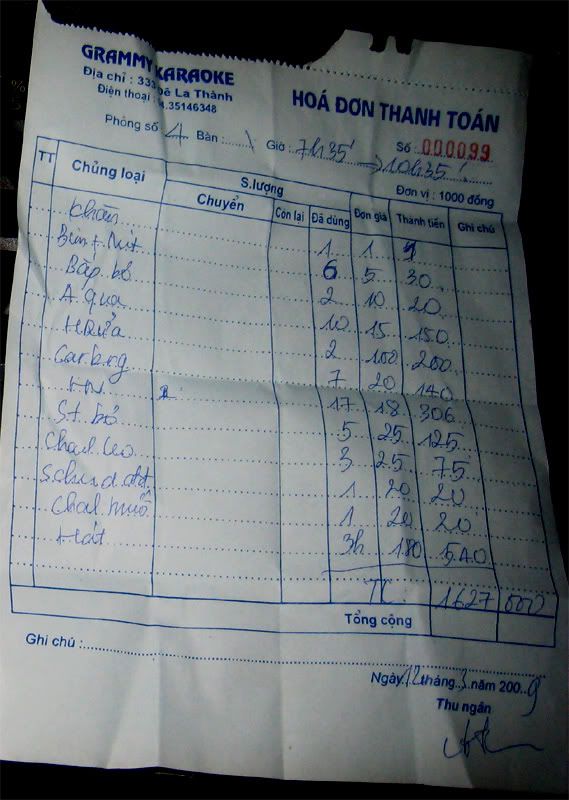 GRAMMY KARAOKE
Địa chỉ : 333 Đê La Thành
Điện thoại : 04.35146348
HOÁ ĐƠN THANH TOÁN
Phòng số 4 Bàn : Giờ : 7h35' → 10h35' Số : 000099
Đơn vị : 1000 đồng
TT Chủng loại S.lượng Đơn giá Thanh tiền Ghi chú
Chuyển Còn lại Đã dùng
Khăn 1 1
Bim + Nút 6 5 30
Bắp bò 2 10 20
A. qua 10 15 150
H quả 2 100 200
Car.b.rg 7 20 140
HN 17 18 306
St. bò 5 25 125
Chal. leo 3 25 75
1 20 20
Chal. muố 1 20 20
Hát 3h 180 540
TC : 1627 000
Tổng cộng
Ghi chú :
Ngày 12 tháng 3 năm 2009
Thu ngân